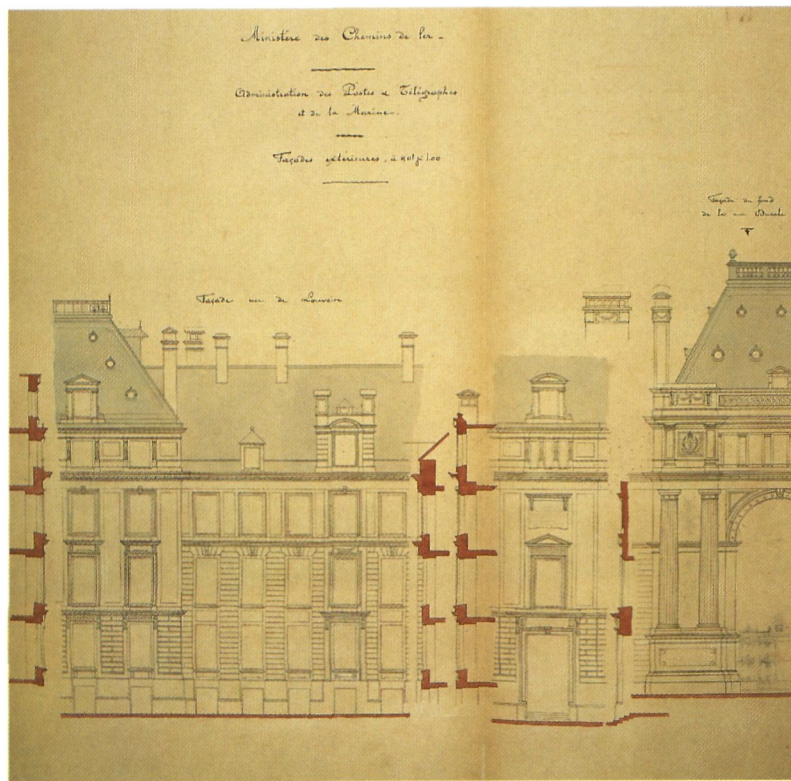 Ministère des Chemins de Fer -
Administration des Postes & Télégraphes
et de la Marine -
Façades extérieures, à 0,01 p. 1.00
Façade du fond
de la rue Ducale
Façade rue de Louvain